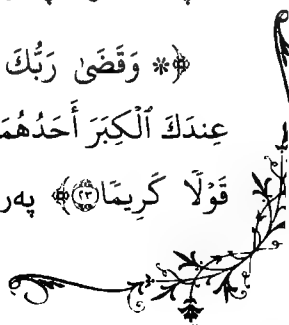 ﴿۞ وَقَضَىٰ رَبُّكَ
عِندَكَ ٱلْكِبَرَ أَحَدُهُمَا
قَوْلًا كَرِيمًا ٢٣﴾ پەر